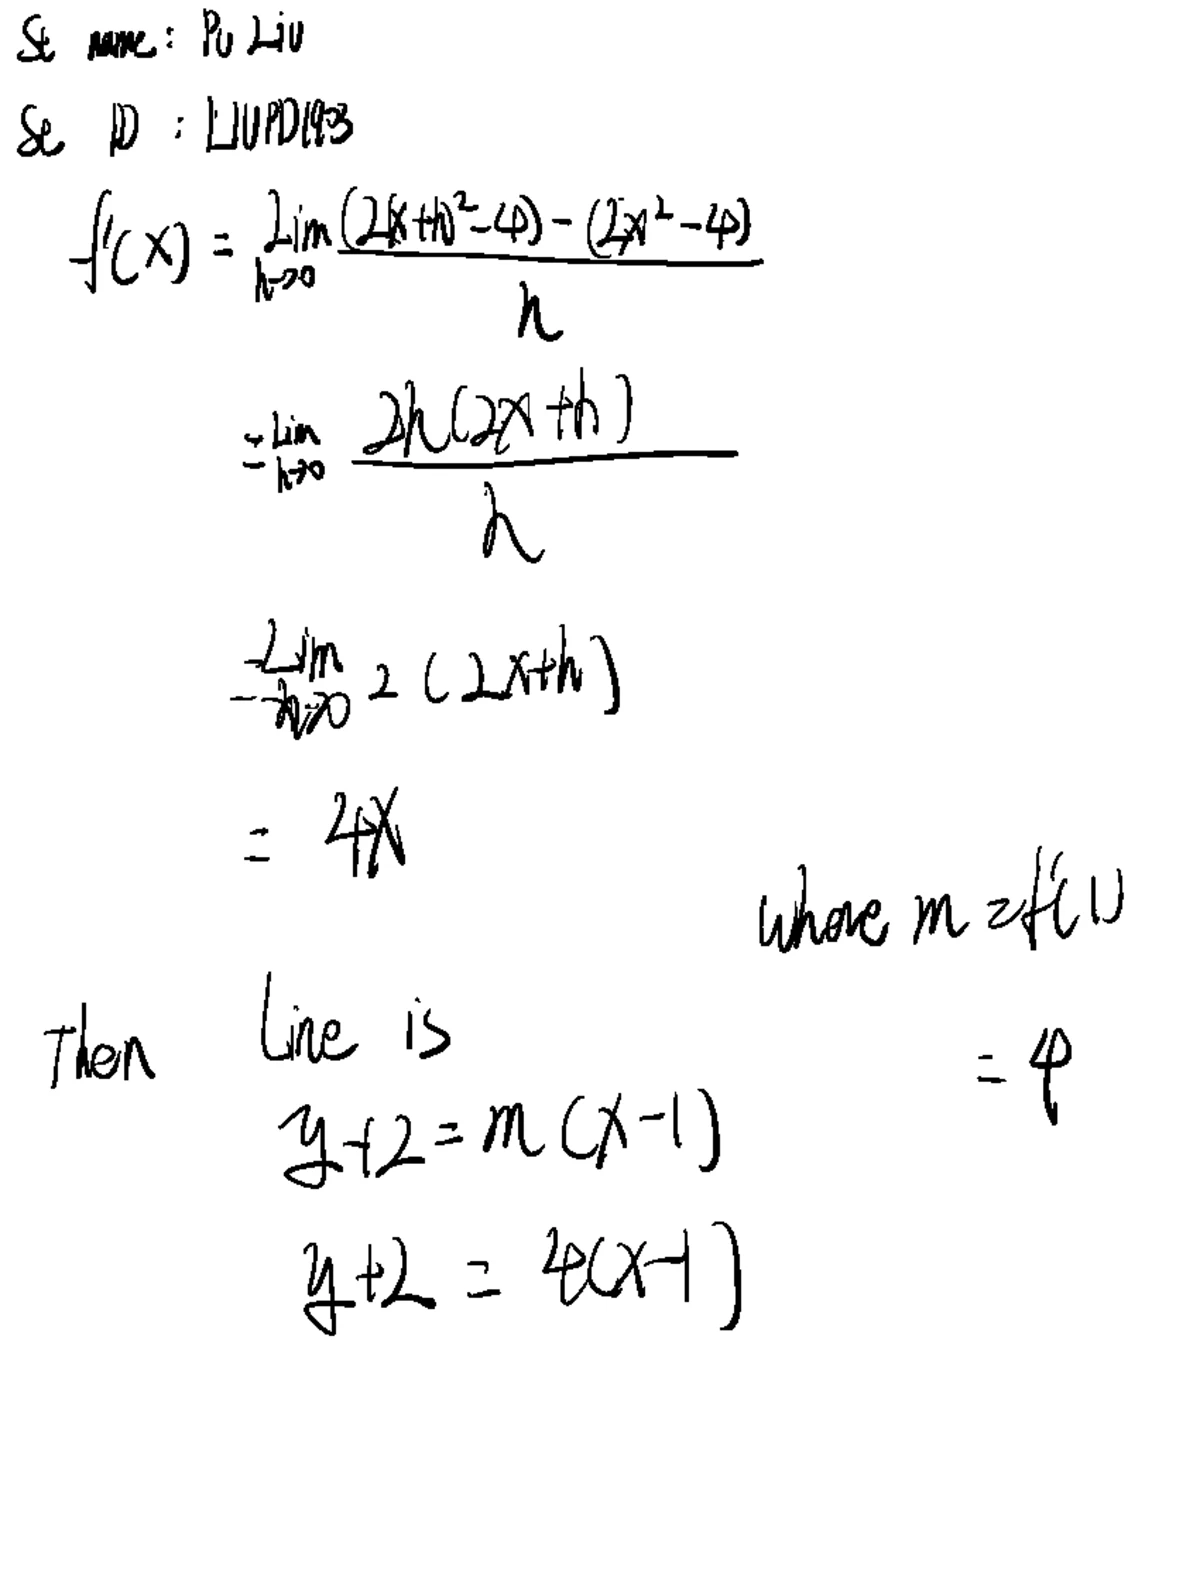 St name: Pu Liu
St ID : LIUPD1903
f'(x) = Lim h→0 (2(x+h)²-4) - (2x²-4) / h
= Lim h→0 2h(2x+h) / h
= Lim h→0 2(2x+h)
= 4x
whose m = f'(1)
= 4
Then Line is
y+2 = m(x-1)
y+2 = 4(x-1)